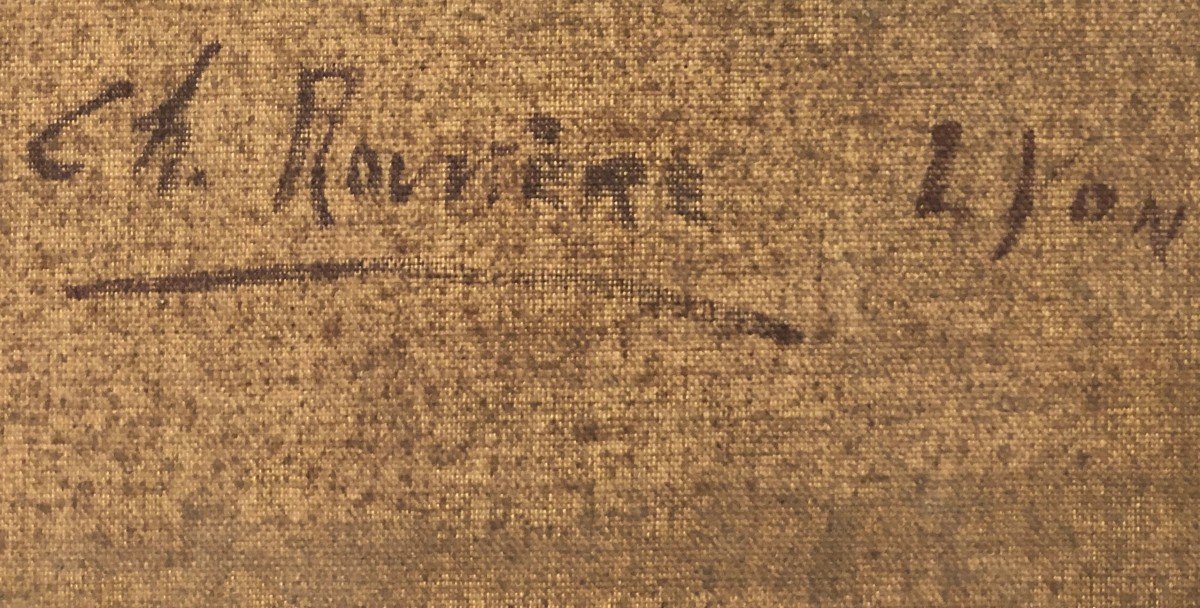 Ch. Rouvière Lyon